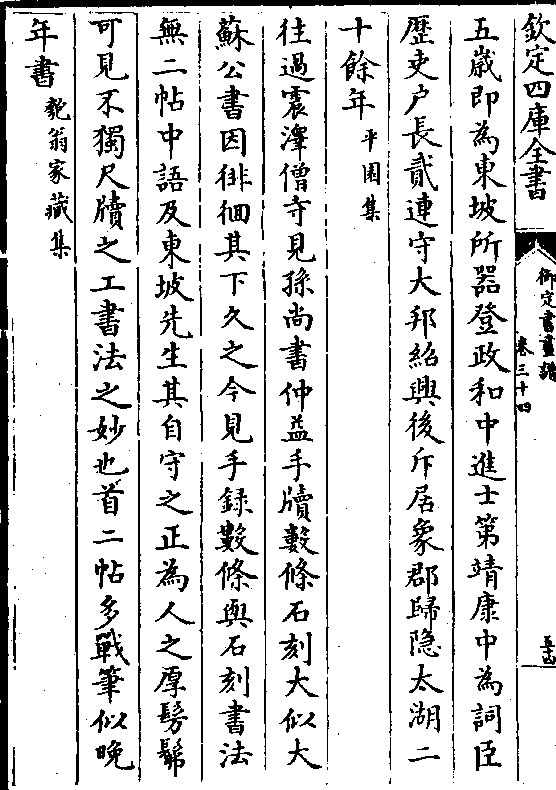 欽定四庫全書
御定書畫譜
卷三十四
五歲即為東坡所器登政和中進士第靖康中為詞臣
歷吏户長貳連守大邦紹興後斥居象郡歸隐太湖二
十餘年平園集
往過震澤僧寺見孫尚書仲益手牘數條石刻大似大
蘇公書因徘徊其下久之今見手録數條與石刻書法
無二帖中語及東坡先生其自守之正為人之厚髣髴
可見不獨尺牘之工書法之妙也首二帖多戰筆似晚
年書匏翁家藏集